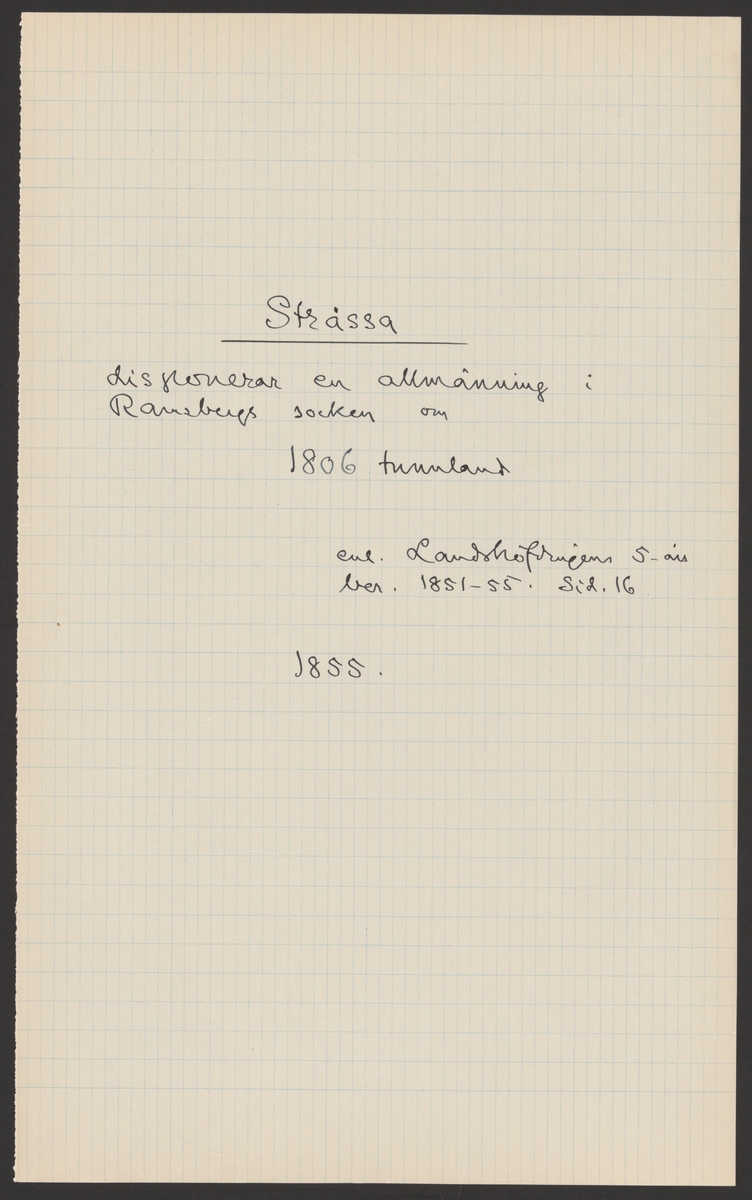 Stråssa
disponerar en allmänning i
Ramsbergs socken om
1806 tunnland
enl. Landshöfdingens 5-års
ber. 1851-55. Sid. 16
1855.